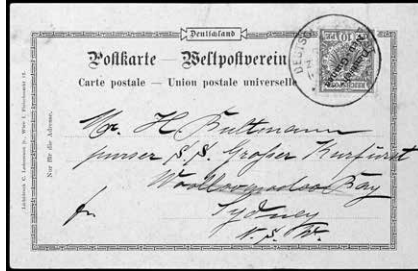 Deutschland
Postkarte — Weltpostverein
Carte postale — Union postale universelle
Nur für die Adresse.
Mr. H. Bultmann
purser S. S. Grosser Kurfürst
Woolloomooloo Bay
Sydney
N. S. W.